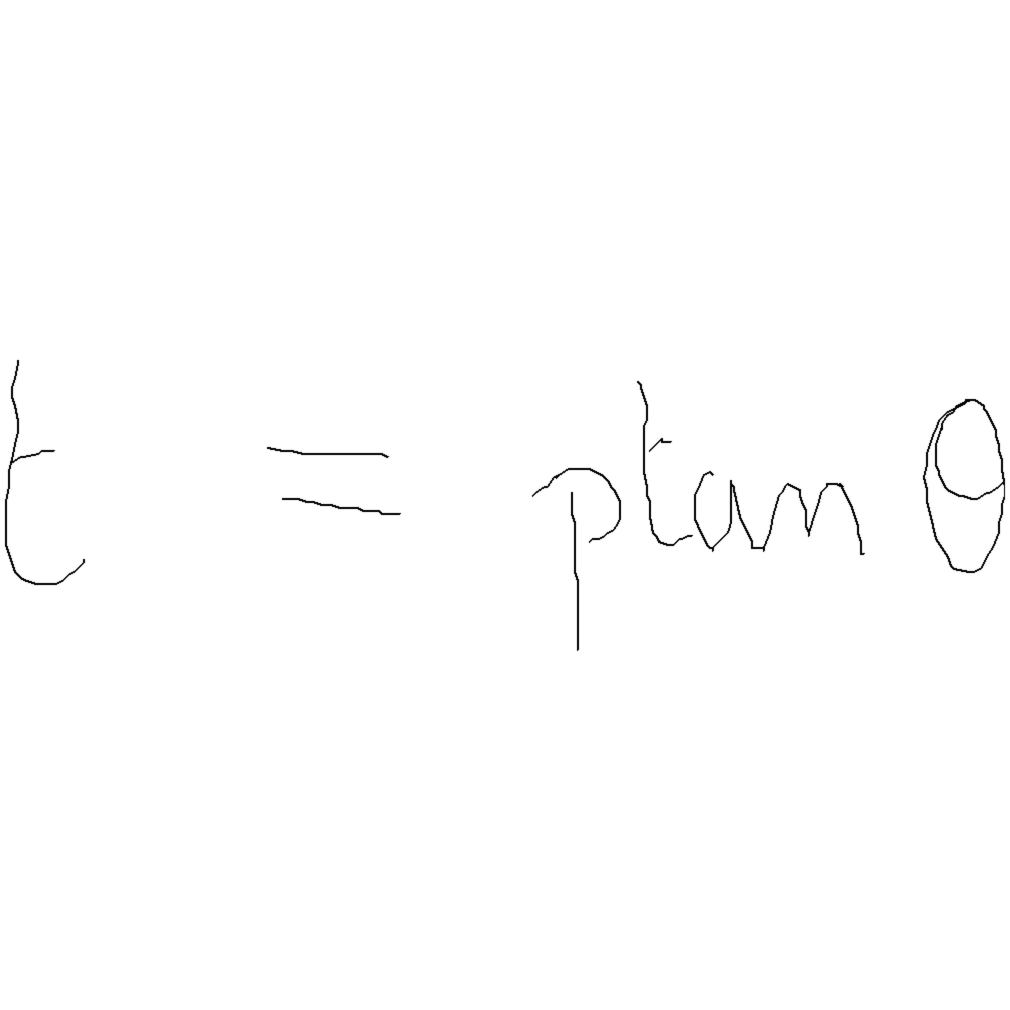 t = p tan θ